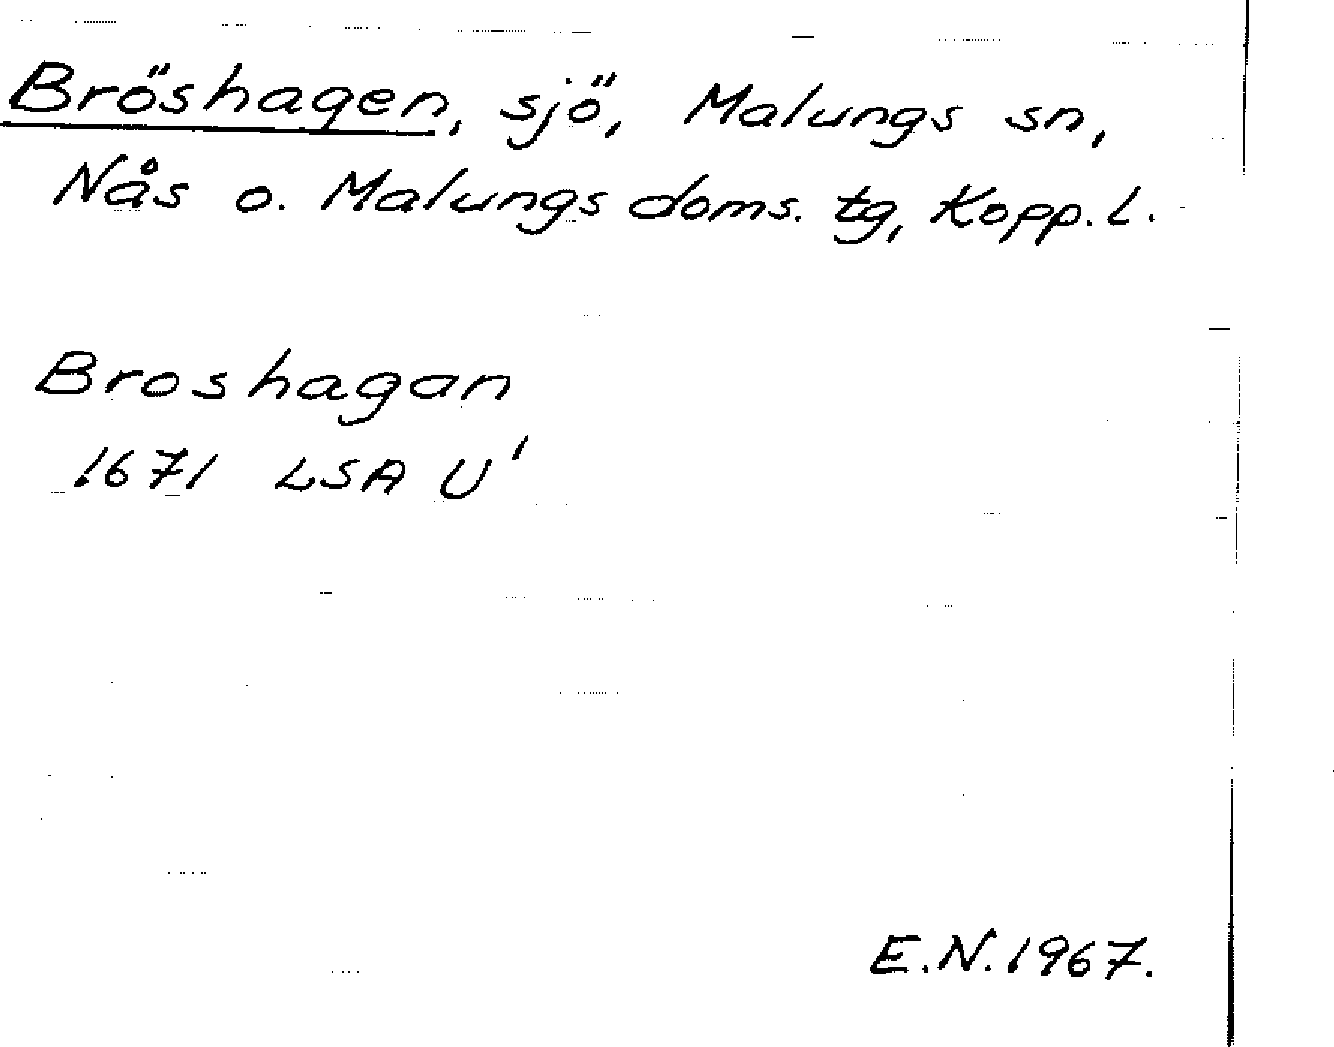 Bröshagen, sjö, Malungs sn,
Nås o. Malungs doms. tg, Kopp. L.
Broshagan
1671 LSA U¹
E.N. 1967.